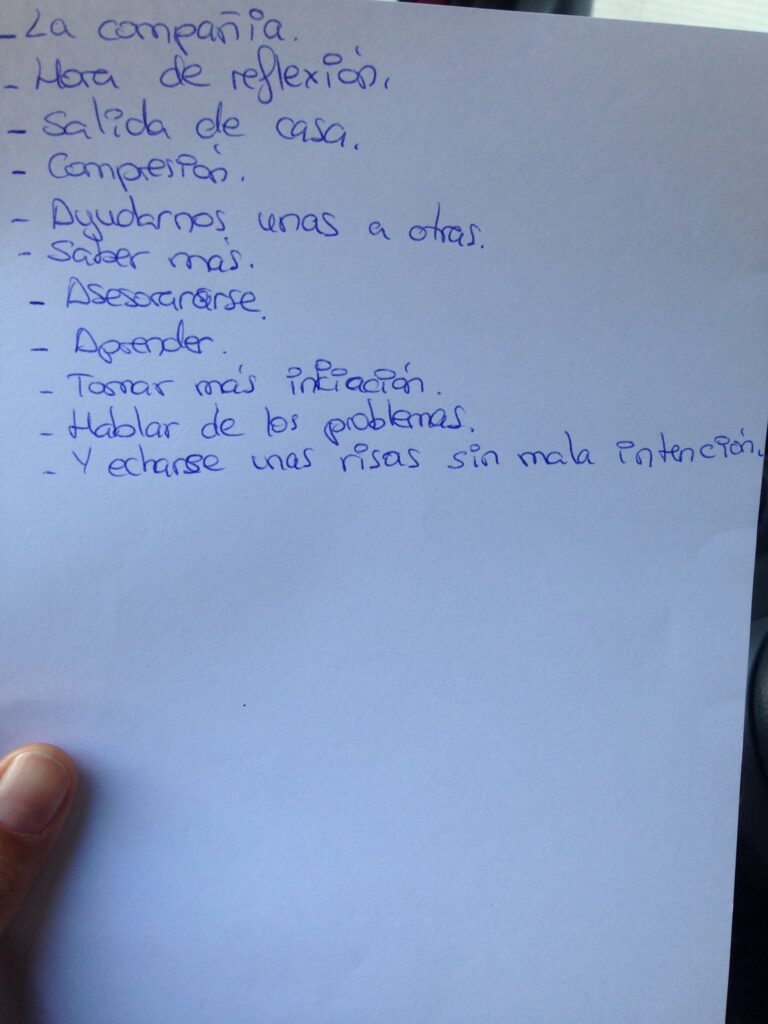 - La compañia.
- Hora de reflexión.
- Salida de casa.
- Compresión.
- Ayudarnos unas a otras.
- Saber más.
- Asesorararse.
- Aprender.
- Tomar más
- Hablar de los problemas.
- Y echarse unas risas sin mala intención.